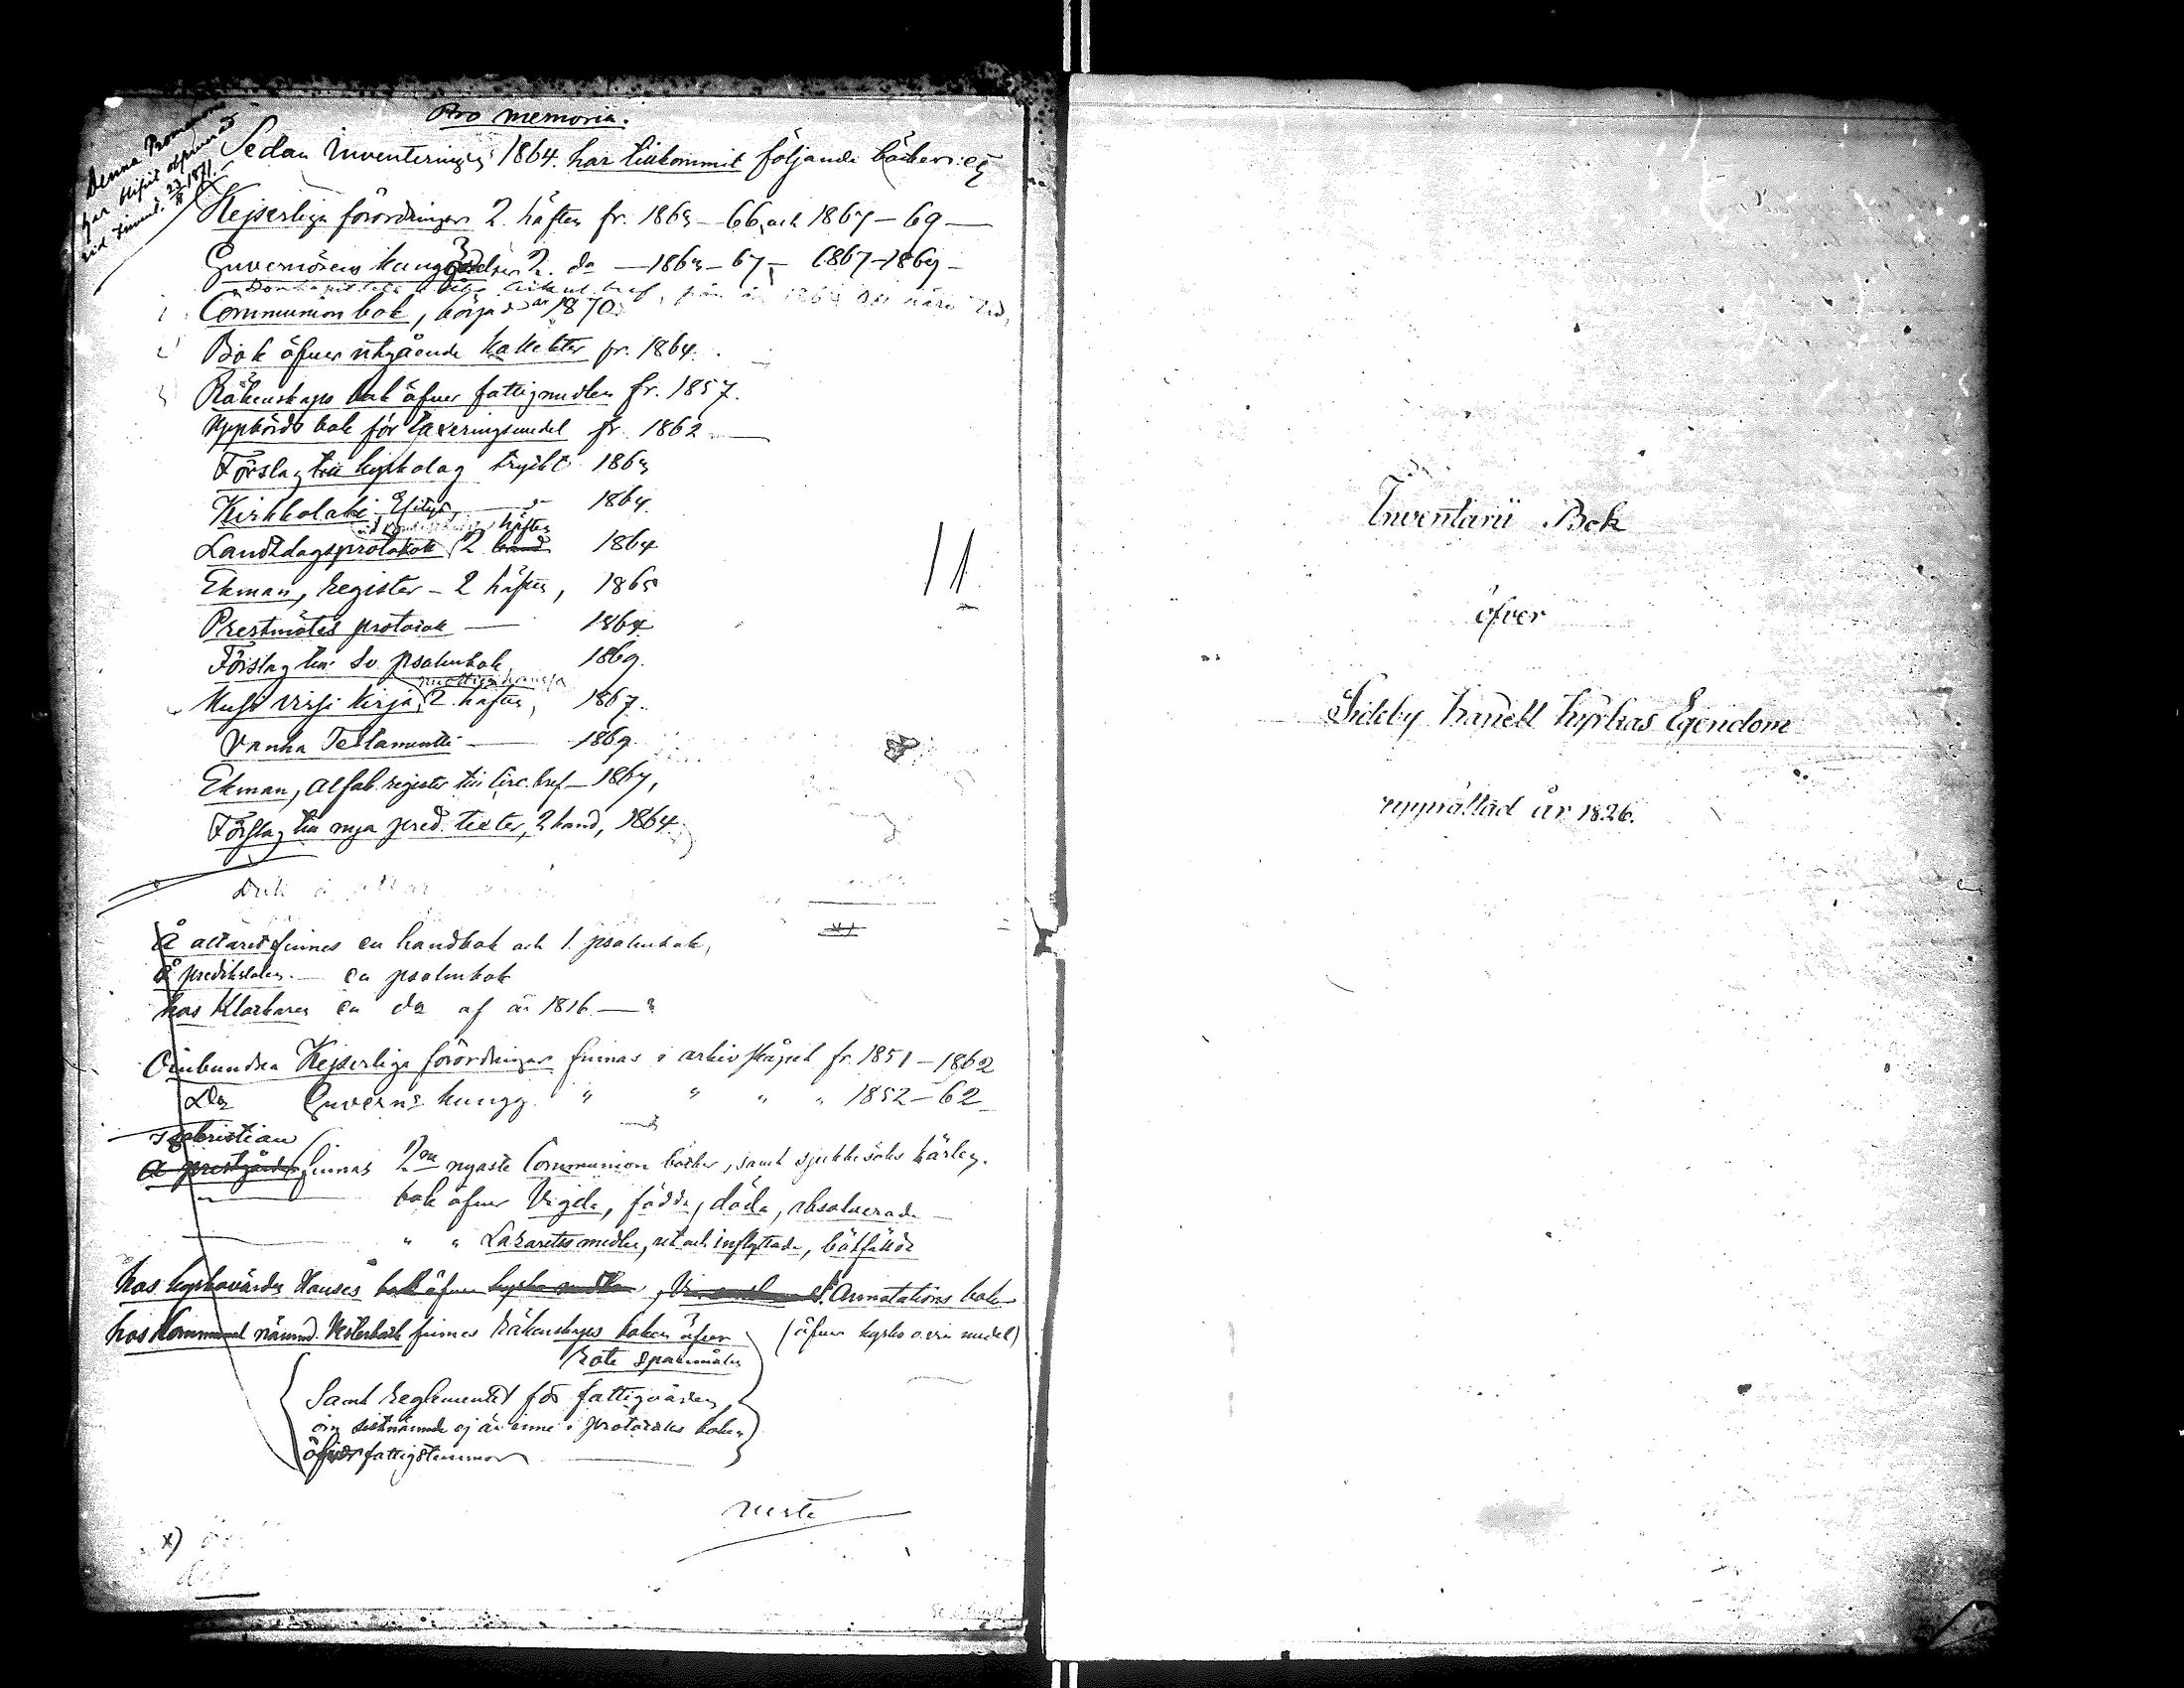 Pro memoria.
Denna Promemoria
har blifvit
vid 1871.
Sedan Inventeringen 1864. har tillkommit följande böcker:
Kejserliga förordningar 2. häften fr. 1863–66, och 1867–69
Guvernörens kungörelser 2. do — 1863–67, 1867–1869
Communion bok, börjad år 1870
Bok öfver utgående kollekter fr. 1864.
Räkenskaps bok öfver fattigmedlen fr. 1857.
Uppbörds bok för taxeringsmedel fr. 1862
Förslag till kyrkolag tryckt 1863
Kirkkolaki 1864.
Landtdagsprotokoll 2 band häften 1864
Ekman, register – 2 häften, 1865
Prestmötes protokoll — 1864
Förslag till Sv. psalmbok, 1869.
Uusi virsi kirja, 2. häften, 1867.
Vanha Testamentti — 1869.
Ekman, Alfab. register till Circ. bref – 1867,
Förslag till nya pred. texter, 2 band, 1864
11
Å altaret finnes en handbok och 1. psalmbok,
å predikstolen — en psalmbok
hos Klockaren en do af år 1816
Oinbundna Kejserliga förordningar finnas i arkiv skåpet fr. 1851–1862
Do Guverns kungg. " " " " 1852–62
I Sakristian
å prestgården finnas 2ne nyaste Communion böcker, samt sjukbesöks kärlen.
bok öfver Vigda, födda, döda, absolverade
" " Lazaretts medlen, ut och inflyttade, bötfällde
hos kyrkovärden Houses bok öfver kyrko medlen, Annotations bok
(öfver kyrko o. vin medel)
hos Kommunal nämnd. finnes Räkenskaps boken öfver
Rote spanmålen
Samt Reglementet för fattigvården,
om sistnämnde ej är inne i protokolls boken
öfver fattigstämmor
verte
x)
Inventarii Bok
öfver
Sideby Kapell Kyrkas Egendom
upprättad år 1826.